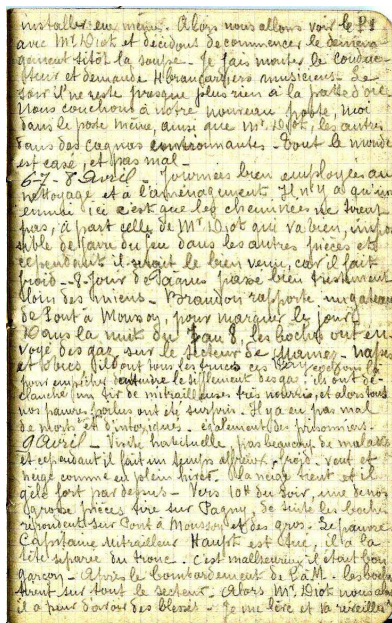 installer eux même. Alors nous allons voir le P1
avec Mr Diot et décidons de commencer le démena
gement sitôt la soupe - Je fais monter le conduc
teur et demande 4 brancardiers musiciens - Le
soir il ne reste presque plus rien à la patte d'oie
Nous couchons à notre nouveau poste, moi
dans le poste même, ainsi que Mr Diot, les autres
dans des cagnas environnantes - Tout le monde
est casé, et pas mal -
6 7 - 8 Avril - Journées bien employées au
nettoyage et à l'aménagement. Il n'y a qu'un
ennui, ici c'est que les cheminées ne tirent
pas, à part celle de Mr Diot qui va bien, impos
sible de faire du feu dans les autres pièces et
cependant il serait le bien venu, car il fait
froid - 8 - Jour de Pâques passé bien tristement
loin des miens - rapporte un gateau
de Pont à Mousson, pour marquer le jour
Dans la nuit du 7 au 8, les boches ont en
voyé des gaz sur le secteur de - nappes
et obus, ils ont tous les trucs ces
pour empêcher entendre le sifflement des gaz : ils ont dé
clanché un tir de mitrailleuses très nourri, et alors tous
nos pauvres poilus ont été surpris. Il y a eu pas mal
de morts et d'intoxiqués - également des prisonniers -
9 Avril - Visite habituelle, pas beaucoup de malades
et cependant il fait un temps affreux, froid - vent et
neige comme en plein hiver. La neige tient et il
gèle fort par dessus - Vers 10H du soir, une de nos
grosses pièces tire sur Pagny, de suite les boches
répondent sur Pont à Mousson et des gros. Le pauvre
Capitaine mitrailleur est tué, il a la
tête séparée du tronc - c'est malheureux il était bon
garçon - Après le bombardement de PàM - les boches
tirent sur tout le secteur. Alors Mr Diot
il a peur d'avoir des blessés - Je me lève et va réveiller